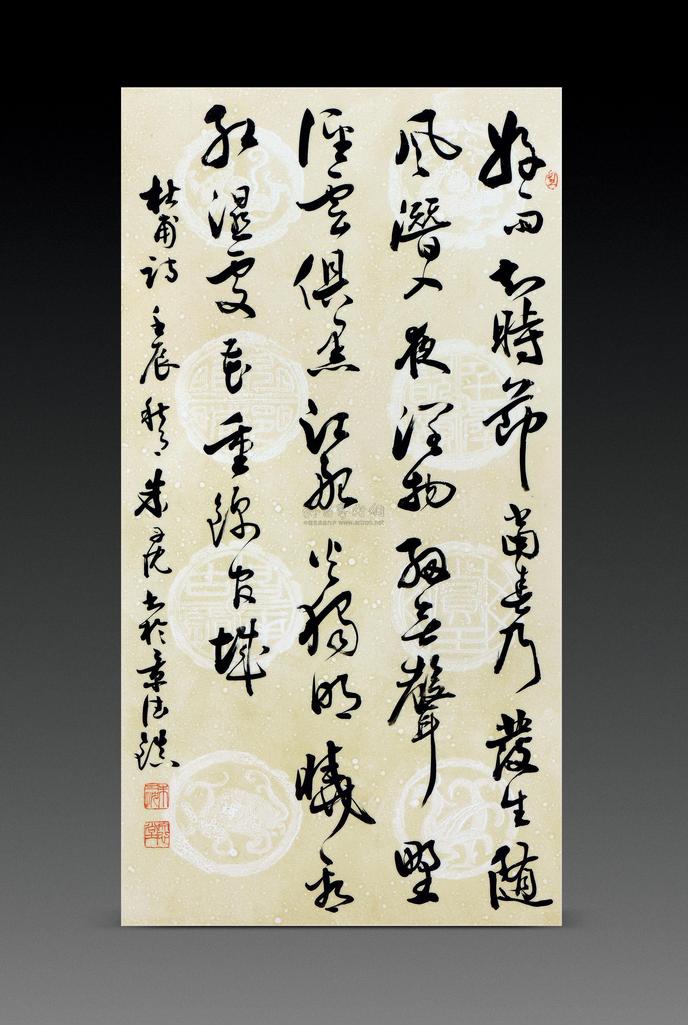 好雨知時節當春乃發生隨
風潛入夜潤物細無聲野
徑雲俱黑江船火獨明曉看
紅濕處花重錦官城
杜甫詩壬辰秋月朱書於景德鎮
www.artron.net